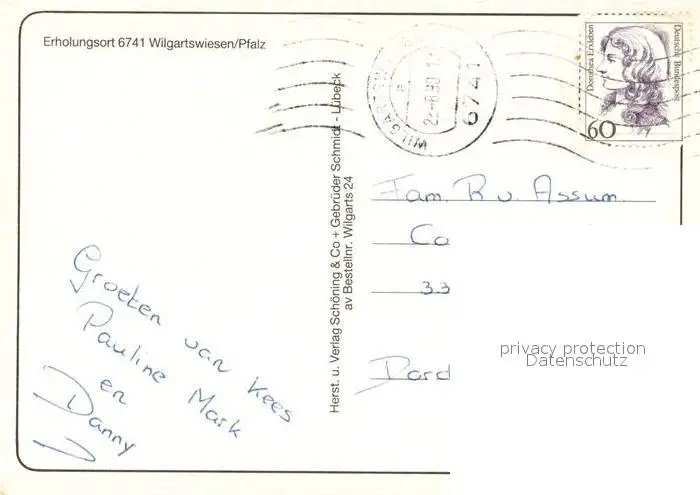 Erholungsort 6741 Wilgartswiesen/Pfalz
6741
Dorothea Erxleben
Deutsche Bundespost
60
Herst. u. Verlag Schöning & Co + Gebrüder Schmidt - Lübeck
av Bestellnr. Wilgarts 24
Fam. R v. Assum.
Co
33
Dord
Groeten van Kees
Pauline Mark
en
Danny
privacy protection
Datenschutz